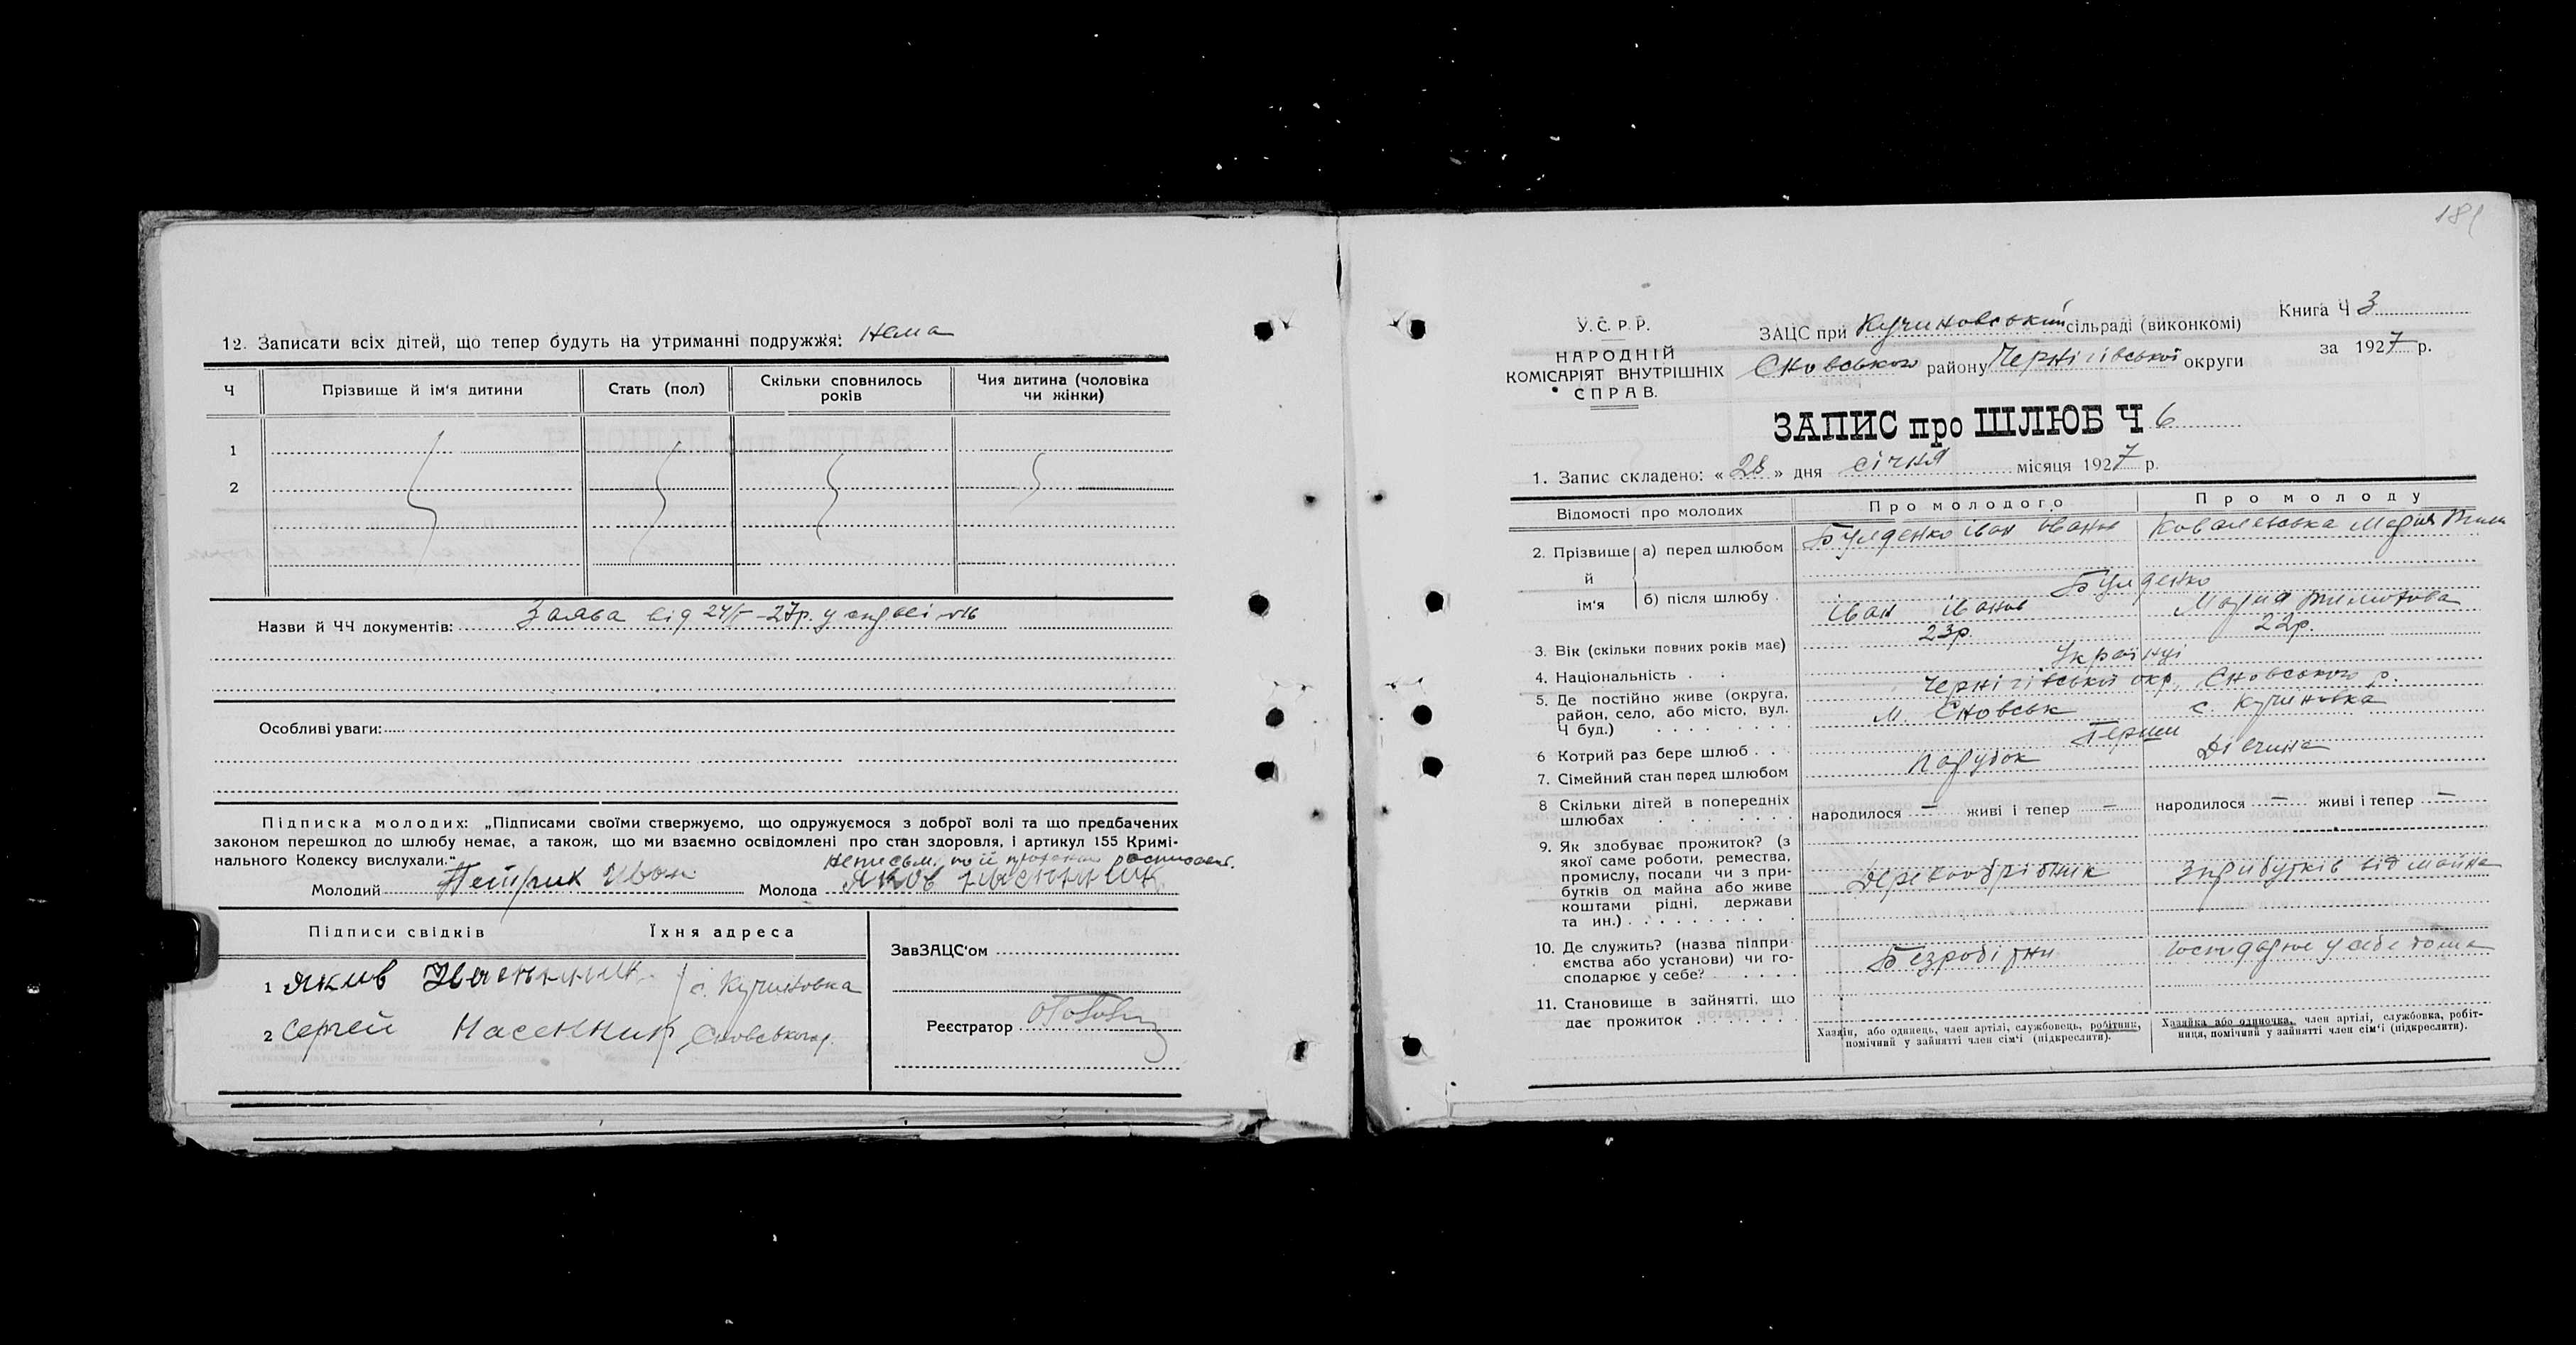 12. Записати всіх дітей, що тепер будуть на утриманні подружжя: нема
Ч Прізвище й ім'я дитини Стать (пол) Скільки сповнилось років Чия дитина (чоловіка чи жінки)
1
2
Назви й ЧЧ документів: Заява від 24/I-27р. у справі №6
Особливі уваги:
Підписка молодих: „Підписами своїми ствержуємо, що одружуємося з доброї волі та що предбачених
законом перешкод до шлюбу немає, а також, що ми взаємно освідомлені про стан здоровля, і артикул 155 Кримі-
нального Кодексу вислухали."
Молодий Иван Молода Яков
Підписи свідків Їхня адреса
ЗавЗАЦС'ом
1 Яков с. Кучиновка
2 Сергей Насенник Сновського р.
Реєстратор
181
У.С.Р.Р.
НАРОДНІЙ
КОМІСАРІЯТ ВНУТРІШНІХ
СПРАВ.
ЗАЦС при Кучиновській сільраді (виконкомі)
Сновського району Чернігівської округи
Книга Ч 3
за 1927 р.
ЗАПИС про ШЛЮБ Ч 6
1. Запис складено: « 28 » дня січня місяця 1927 р.
Відомості про молодих Про молодого Про молоду
2. Прізвище й ім'я а) перед шлюбом Іван Іванов Ковалевська Мария Тим
б) після шлюбу Іван Іванов Мария Тимохова
3. Вік (скільки повних років має) 23р. 22р.
4. Національність Українці
5. Де постійно живе (округа, Чернігівської окр. Сновського р.
район, село, або місто, вул. м. Сновськ с. Кучиновка
Ч буд.)
6 Котрий раз бере шлюб Перший
7. Сімейний стан перед шлюбом Парубок Дівчина
8 Скільки дітей в попередніх
шлюбах народилося — живі і тепер — народилося — живі і тепер —
9. Як здобуває прожиток? (з
якої саме роботи, ремества,
промислу, посади чи з при-
бутків од майна або живе
коштами рідні, держави
та ин.) Деревообрібник З прибутків від майна
10. Де служить? (назва підпри-
ємства або установи) чи го-
сподарює у себе? Безробітни Господарює у себе дома
11. Становище в зайнятті, що
дає прожиток
Хазяїн, або одинець, член артілі, службовець, робітник,
помічний у зайнятті член сім'ї (підкреслити).
Хазяйка або одиночка, член артілі, службовка, робіт-
ниця, помічний у зайнятті член сім'ї (підкреслити).